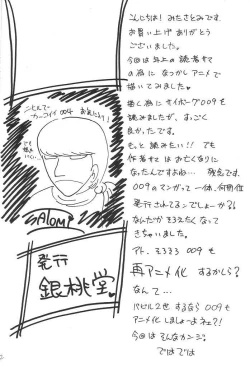 こんにちは！みたさとみです。
お買い上げありがとう
ございました。
今回は年上の読者サマ
の為になつかしアニメで
描いてみました。
描く為にサイボーグ009を
読みましたが、すっごく
よかったです。
もっと読みたい!! でも
作者サマはお亡くなりに
なったんですよね… 残念です。
009のマンガって一体、何冊位
発行されてるんでしょーか？
なんだかそろえたくなって
きちゃいました。
アト、そろそろ 009も
再アニメ化 するかしら？
なんて…
バビル2世するなら 009も
アニメ化しましょーよネェ?!
今回はそんなカンジ。
ではでは
ニヒルで
カッコイイ 004
お気に入り
でも
描き
にくい…
ATOM
発行
銀桃堂